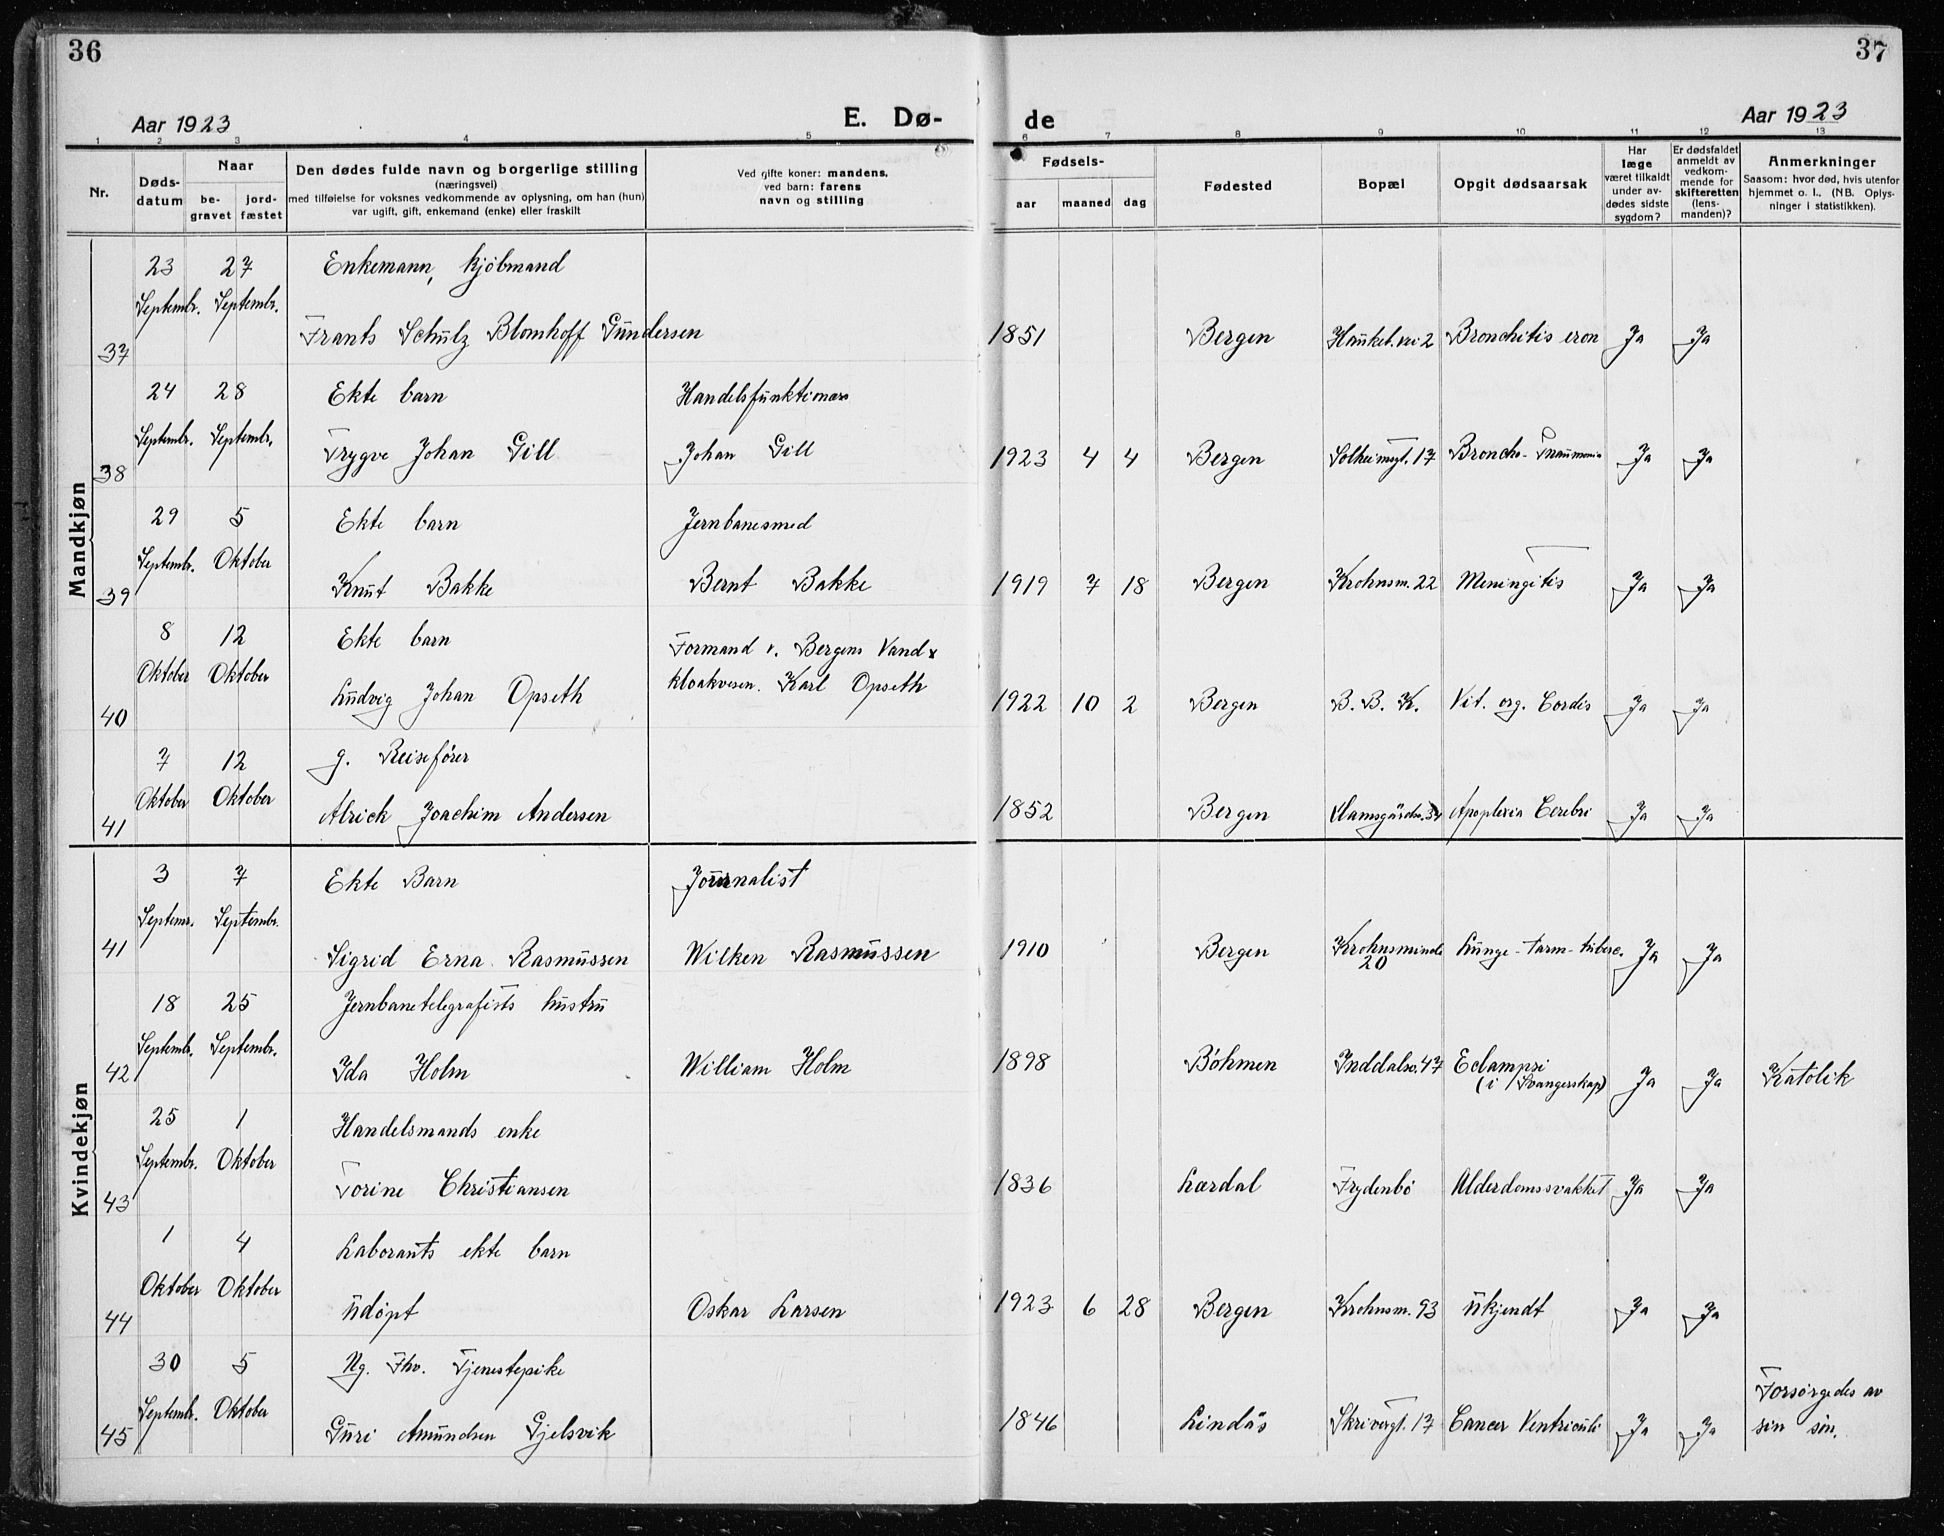 36
37
Aar 1923
E. Dø-
de
Aar 1923
1 2 3 4 5 6 7 8 9 10 11 12 13
Nr.
Døds-
datum
Naar
be-
gravet
jord-
fæstet
Den dødes fulde navn og borgerlige stilling
(næringsvei)
med tilføielse for voksnes vedkommende av oplysning, om han (hun)
var ugift, gift, enkemand (enke) eller fraskilt
Ved gifte koner: mandens,
ved barn: farens
navn og stilling
Fødsels-
aar maaned dag
Fødested
Bopæl
Opgit dødsaarsak
Har
læge
været tilkaldt
under av-
dødes sidste
sygdom?
Er dødsfaldet
anmeldt av
vedkom-
mende for
skifteretten
(lens-
manden)?
Anmerkninger
Saasom: hvor død, hvis utenfor
hjemmet o. l. (NB. Oplys-
ninger i statistikken).
Mandkjøn
23 27 Enkemann, kjöbmand
Septembr. Septembr.
37 Frants Schulz Blomhoff Gundersen 1851 Bergen Hauket.vei 2 Bronchitis cron Ja Ja
24 28 Ekte barn Handelsfunktionær
Septembr. Septembr.
38 Trygve Johan Gill Johan Gill 1923 4 4 Bergen Solheimsgt. 17 Broncho-Pneumonia Ja Ja
29 5 Ekte barn Jernbanesmed
Septembr. Oktober
39 Knut Bakke Bernt Bakke 1919 7 18 Bergen Krohnsm. 22 Meningitis Ja Ja
8 12 Ekte barn Formand v. Bergens Vand &
Oktober Oktober kloakvesen. Karl Opseth
40 Ludvig Johan Opseth 1922 10 2 Bergen B. B. K. Vit. org. Cordis Ja Ja
7 12 g. Reisefører
Oktober Oktober
41 Alrick Joachim Andersen 1852 Bergen Apoplexia Cerebri Ja Ja
Kvindekjøn
3 7 Ekte Barn Journalist
Septemr. Septembr.
41 Sigrid Erna Rasmussen Wilken Rasmussen 1910 Bergen Krohnsminde 20 Lunge-tarm-tuberc. Ja Ja
18 25 Jernbanetelegrafists hustru
Septembr. Septembr.
42 Ida Holm William Holm 1898 Böhmen Inddalsv. 47 Eclampsi (i Svangerskap) Ja Ja Katolik
25 1 Handelsmands enke
Septembr. Oktober
43 Torine Christiansen 1836 Lærdal Frydenbö Alderdomssvakket Ja Ja
1 4 Laborants ekte barn
Oktober Oktober
44 Udøpt Oskar Larsen 1923 6 28 Bergen Krohnsm. 93 Ukjendt Ja Ja
30 5 Ug. Fhv. Tjenestepike
Septembr. Oktober
45 Guri Amundsen Gjelsvik 1846 Lindås Skrivergt. 17 Cancer Ventriculi Ja Ja Forsørgedes av
sin søn.